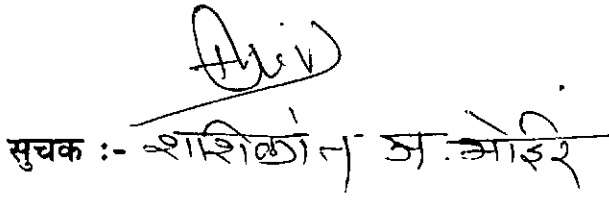 सुचक :- शशिकांत अ. भोईर